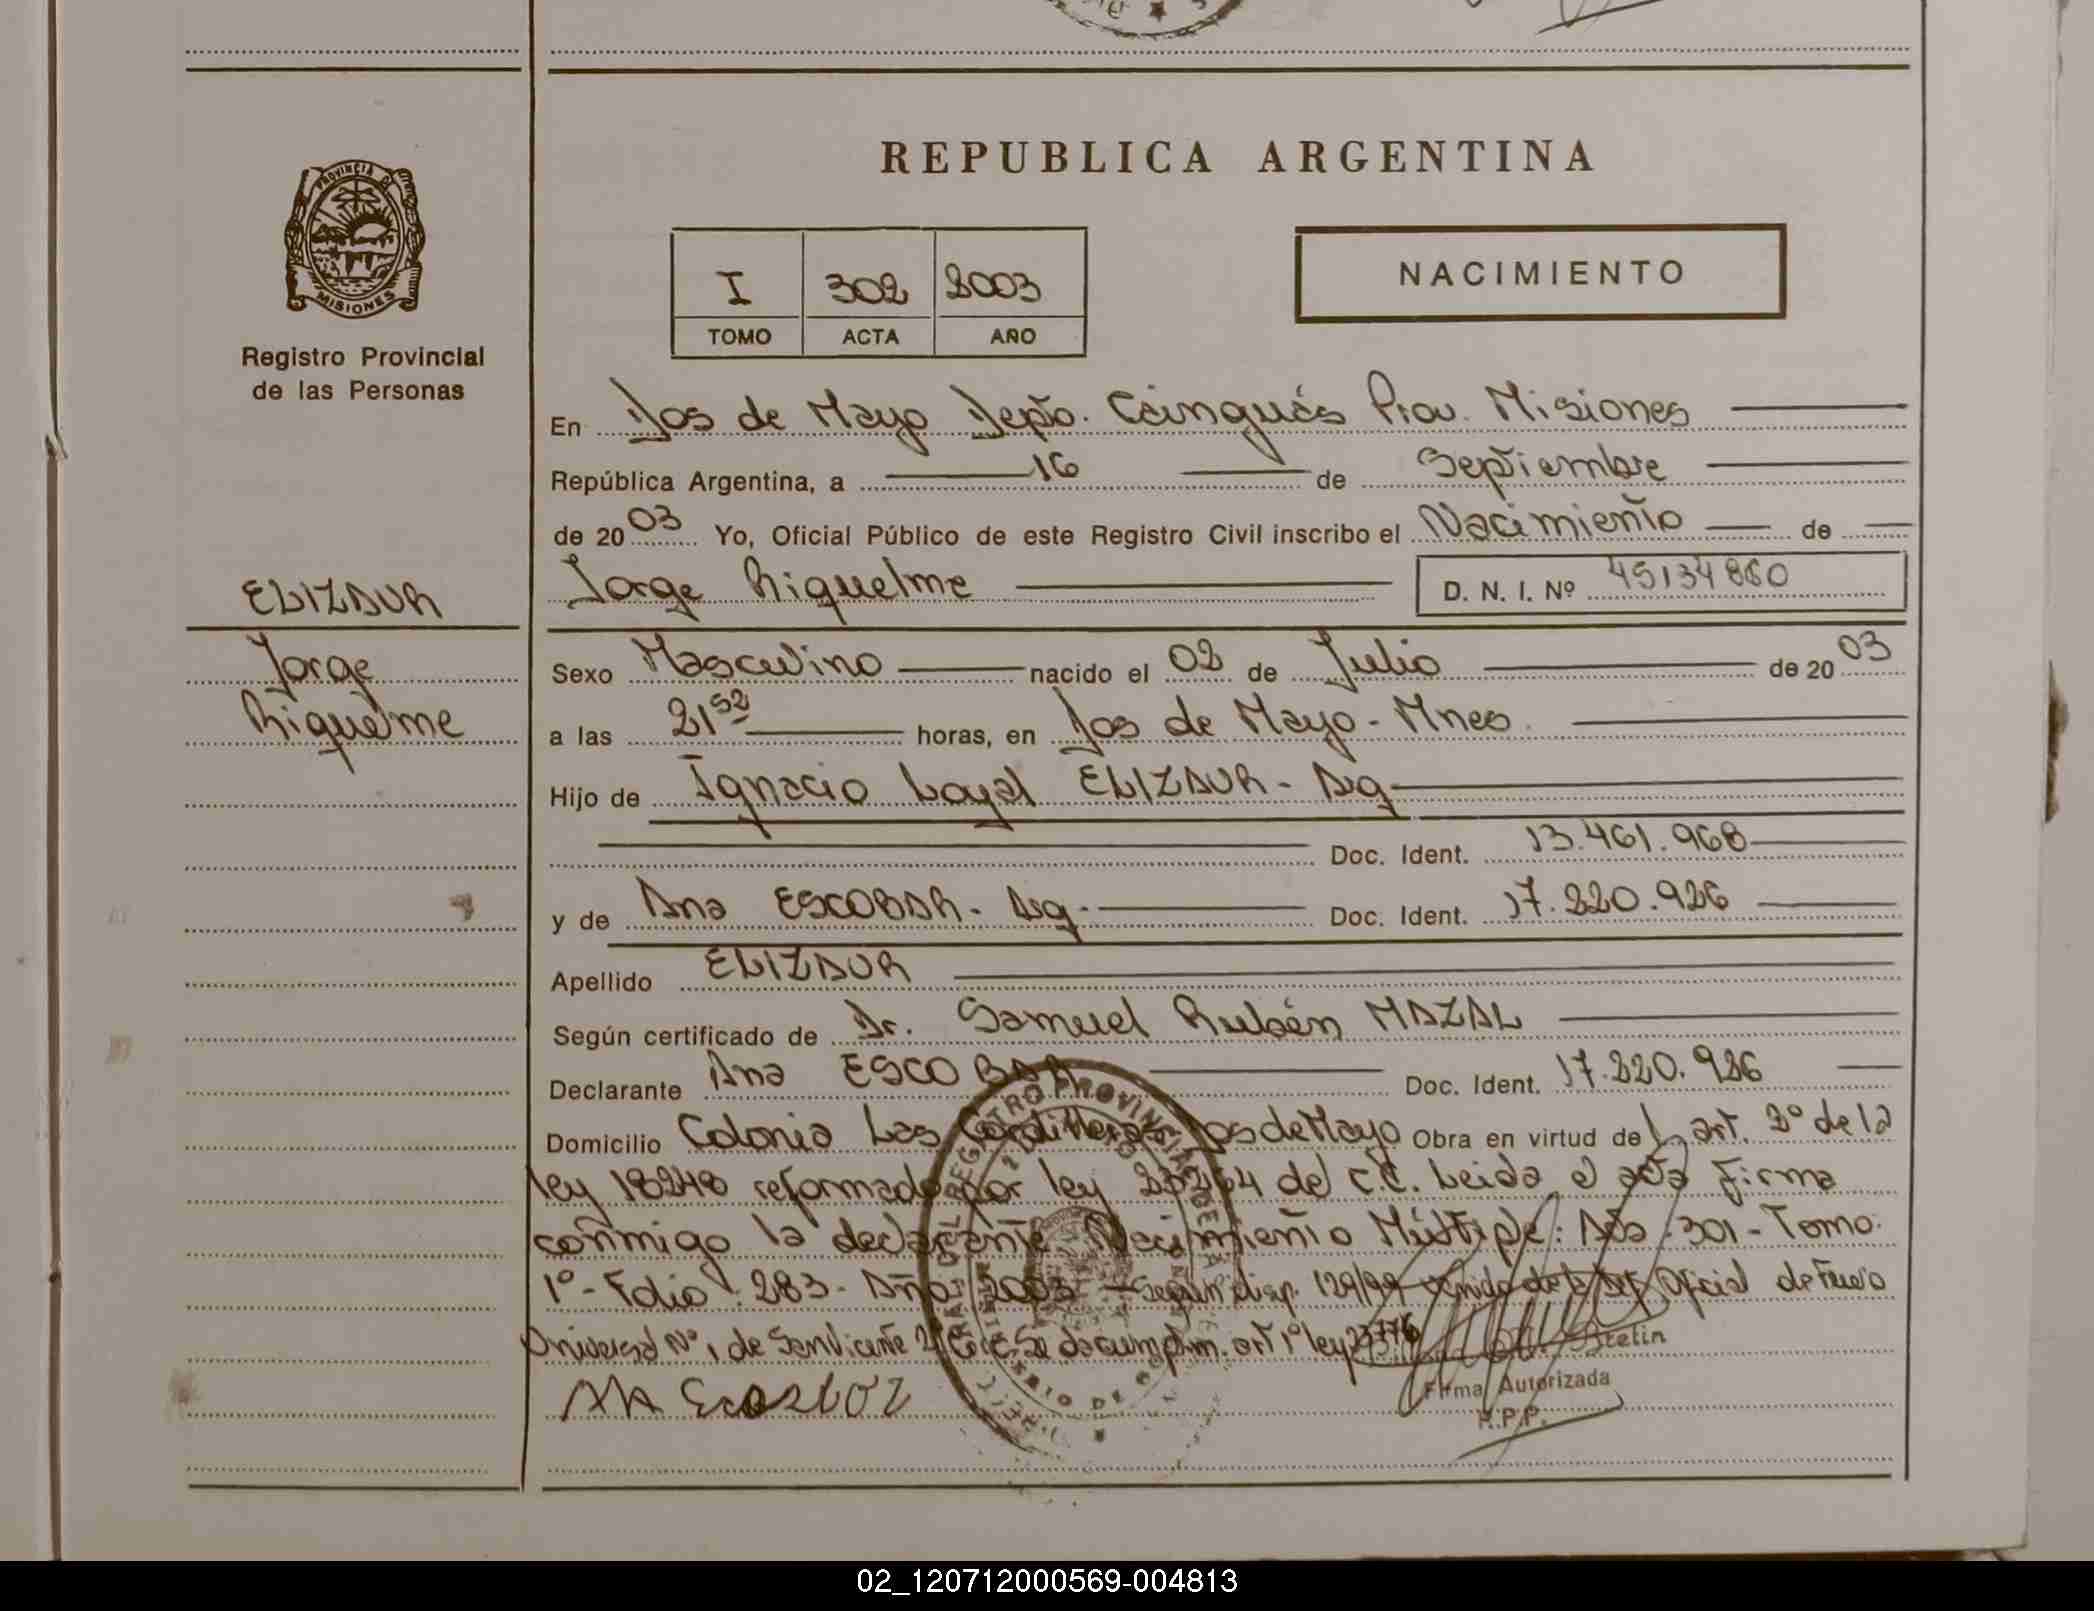 REPUBLICA ARGENTINA
PROVINCIA DE
MISIONES
Registro Provincial
de las Personas
I 302 2003
TOMO ACTA AÑO
NACIMIENTO
En Dos de Mayo Depto. Cainguás Prov. Misiones
República Argentina, a 16 de Septiembre
de 2003 Yo, Oficial Público de este Registro Civil inscribo el Nacimiento de
Jorge Riquelme D. N. I. Nº 45134860
ELIZAUR
Jorge
Riquelme
Sexo Masculino nacido el 02 de Julio de 2003
a las 21 52 horas, en Dos de Mayo - Mnes.
Hijo de Ignacio Loyal ELIZAUR - Arg
Doc. Ident. 13.461.968
y de Ana ESCOBAR - Arg - Doc. Ident. 17.220.926
Apellido ELIZAUR
Según certificado de Dr. Samuel Rubén MAZAL
Declarante Ana ESCOBAR Doc. Ident. 17.220.926
Domicilio Colonia Las Cordilleras Dos de Mayo Obra en virtud del art. 2º de la
ley 18248 reformado por ley 23264 del C.C. Leida el acta firma
conmigo la declarante Nacimiento Múltiple: Acta: 301 - Tomo
1º - Folio: 283 - Año 2003 - Según disp. 129/99 Oficial de Fuero
Universal Nº 1 de San Vicente Se da cumplim. art 1º ley 23776
Firma Autorizada
R.P.P.
02_120712000569-004813